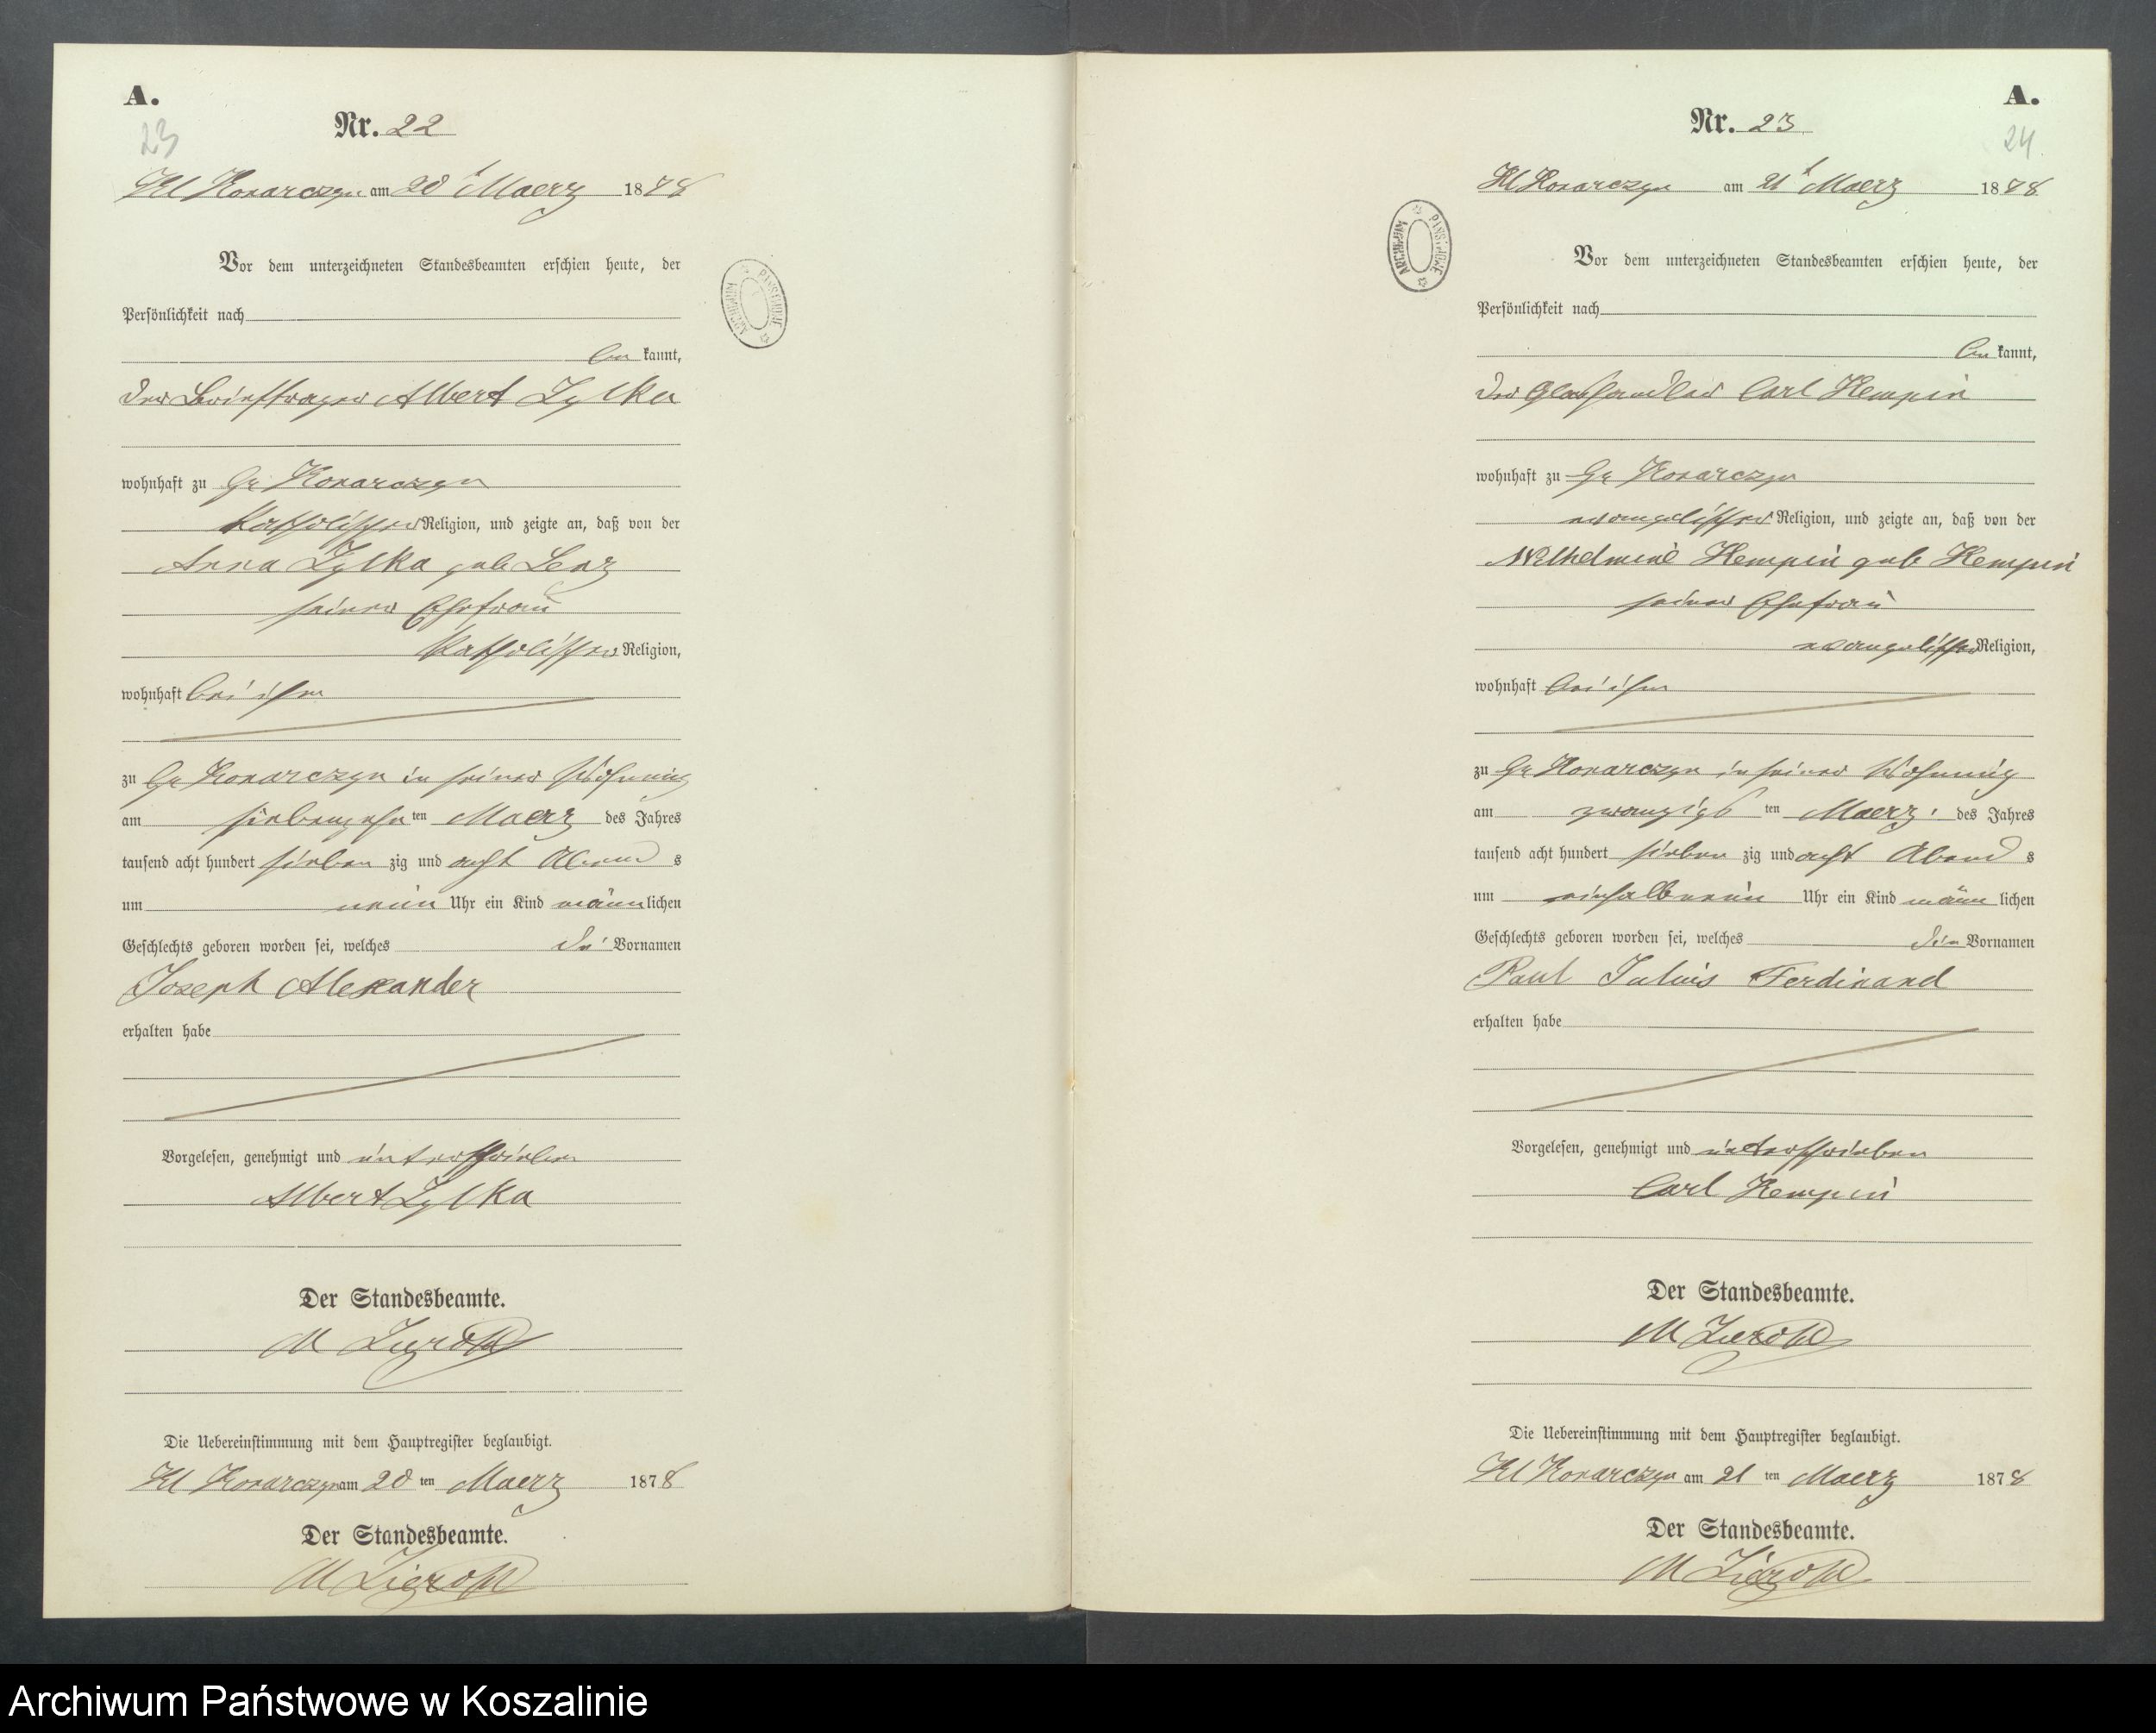 A.
23
Nr. 22
Kl Konarczyn am 20t Maerz 1878
Vor dem unterzeichneten Standesbeamten erschien heute, der
Persönlichkeit nach
be kannt,
der Briefträger Albert Zylka
wohnhaft zu Gr Konarczyn
katholischer Religion, und zeigte an, daß von der
Anna Zylka geb Lenz
seiner Ehefrau
katholischer Religion,
wohnhaft bei ihm
zu Gr Konarczyn in seiner Wohnung
am siebenzehn ten Maerz des Jahres
tausend acht hundert sieben zig und acht Abend s
um neun Uhr ein Kind männ lichen
Geschlechts geboren worden sei, welches die Vornamen
Joseph Alexander
erhalten habe
Vorgelesen, genehmigt und unterschrieben
Albert Zylka
Der Standesbeamte.
M
Die Uebereinstimmung mit dem Hauptregister beglaubigt.
Kl Konarczyn am 20 ten Maerz 1878
Der Standesbeamte.
M
ARCHIWUM PAŃSTWOWE
A.
24
Nr. 23
Kl Konarczyn am 21t Maerz 1878
Vor dem unterzeichneten Standesbeamten erschien heute, der
Persönlichkeit nach
be kannt,
der Glashandler Carl Kempin
wohnhaft zu Gr Konarczyn
evangelischer Religion, und zeigte an, daß von der
Wilhelmine Kempin geb Kempin
seiner Ehefrau
evangelischer Religion,
wohnhaft bei ihm
zu Gr Konarczyn in seiner Wohnung
am zwanzigs ten Maerz des Jahres
tausend acht hundert sieben zig und acht Abend s
um einhalbneun Uhr ein Kind männ lichen
Geschlechts geboren worden sei, welches die Vornamen
Paul Julius Ferdinand
erhalten habe
Vorgelesen, genehmigt und unterschrieben
Carl Kempin
Der Standesbeamte.
M
Die Uebereinstimmung mit dem Hauptregister beglaubigt.
Kl Konarczyn am 21 ten Maerz 1878
Der Standesbeamte.
M
ARCHIWUM PAŃSTWOWE
Archiwum Państwowe w Koszalinie